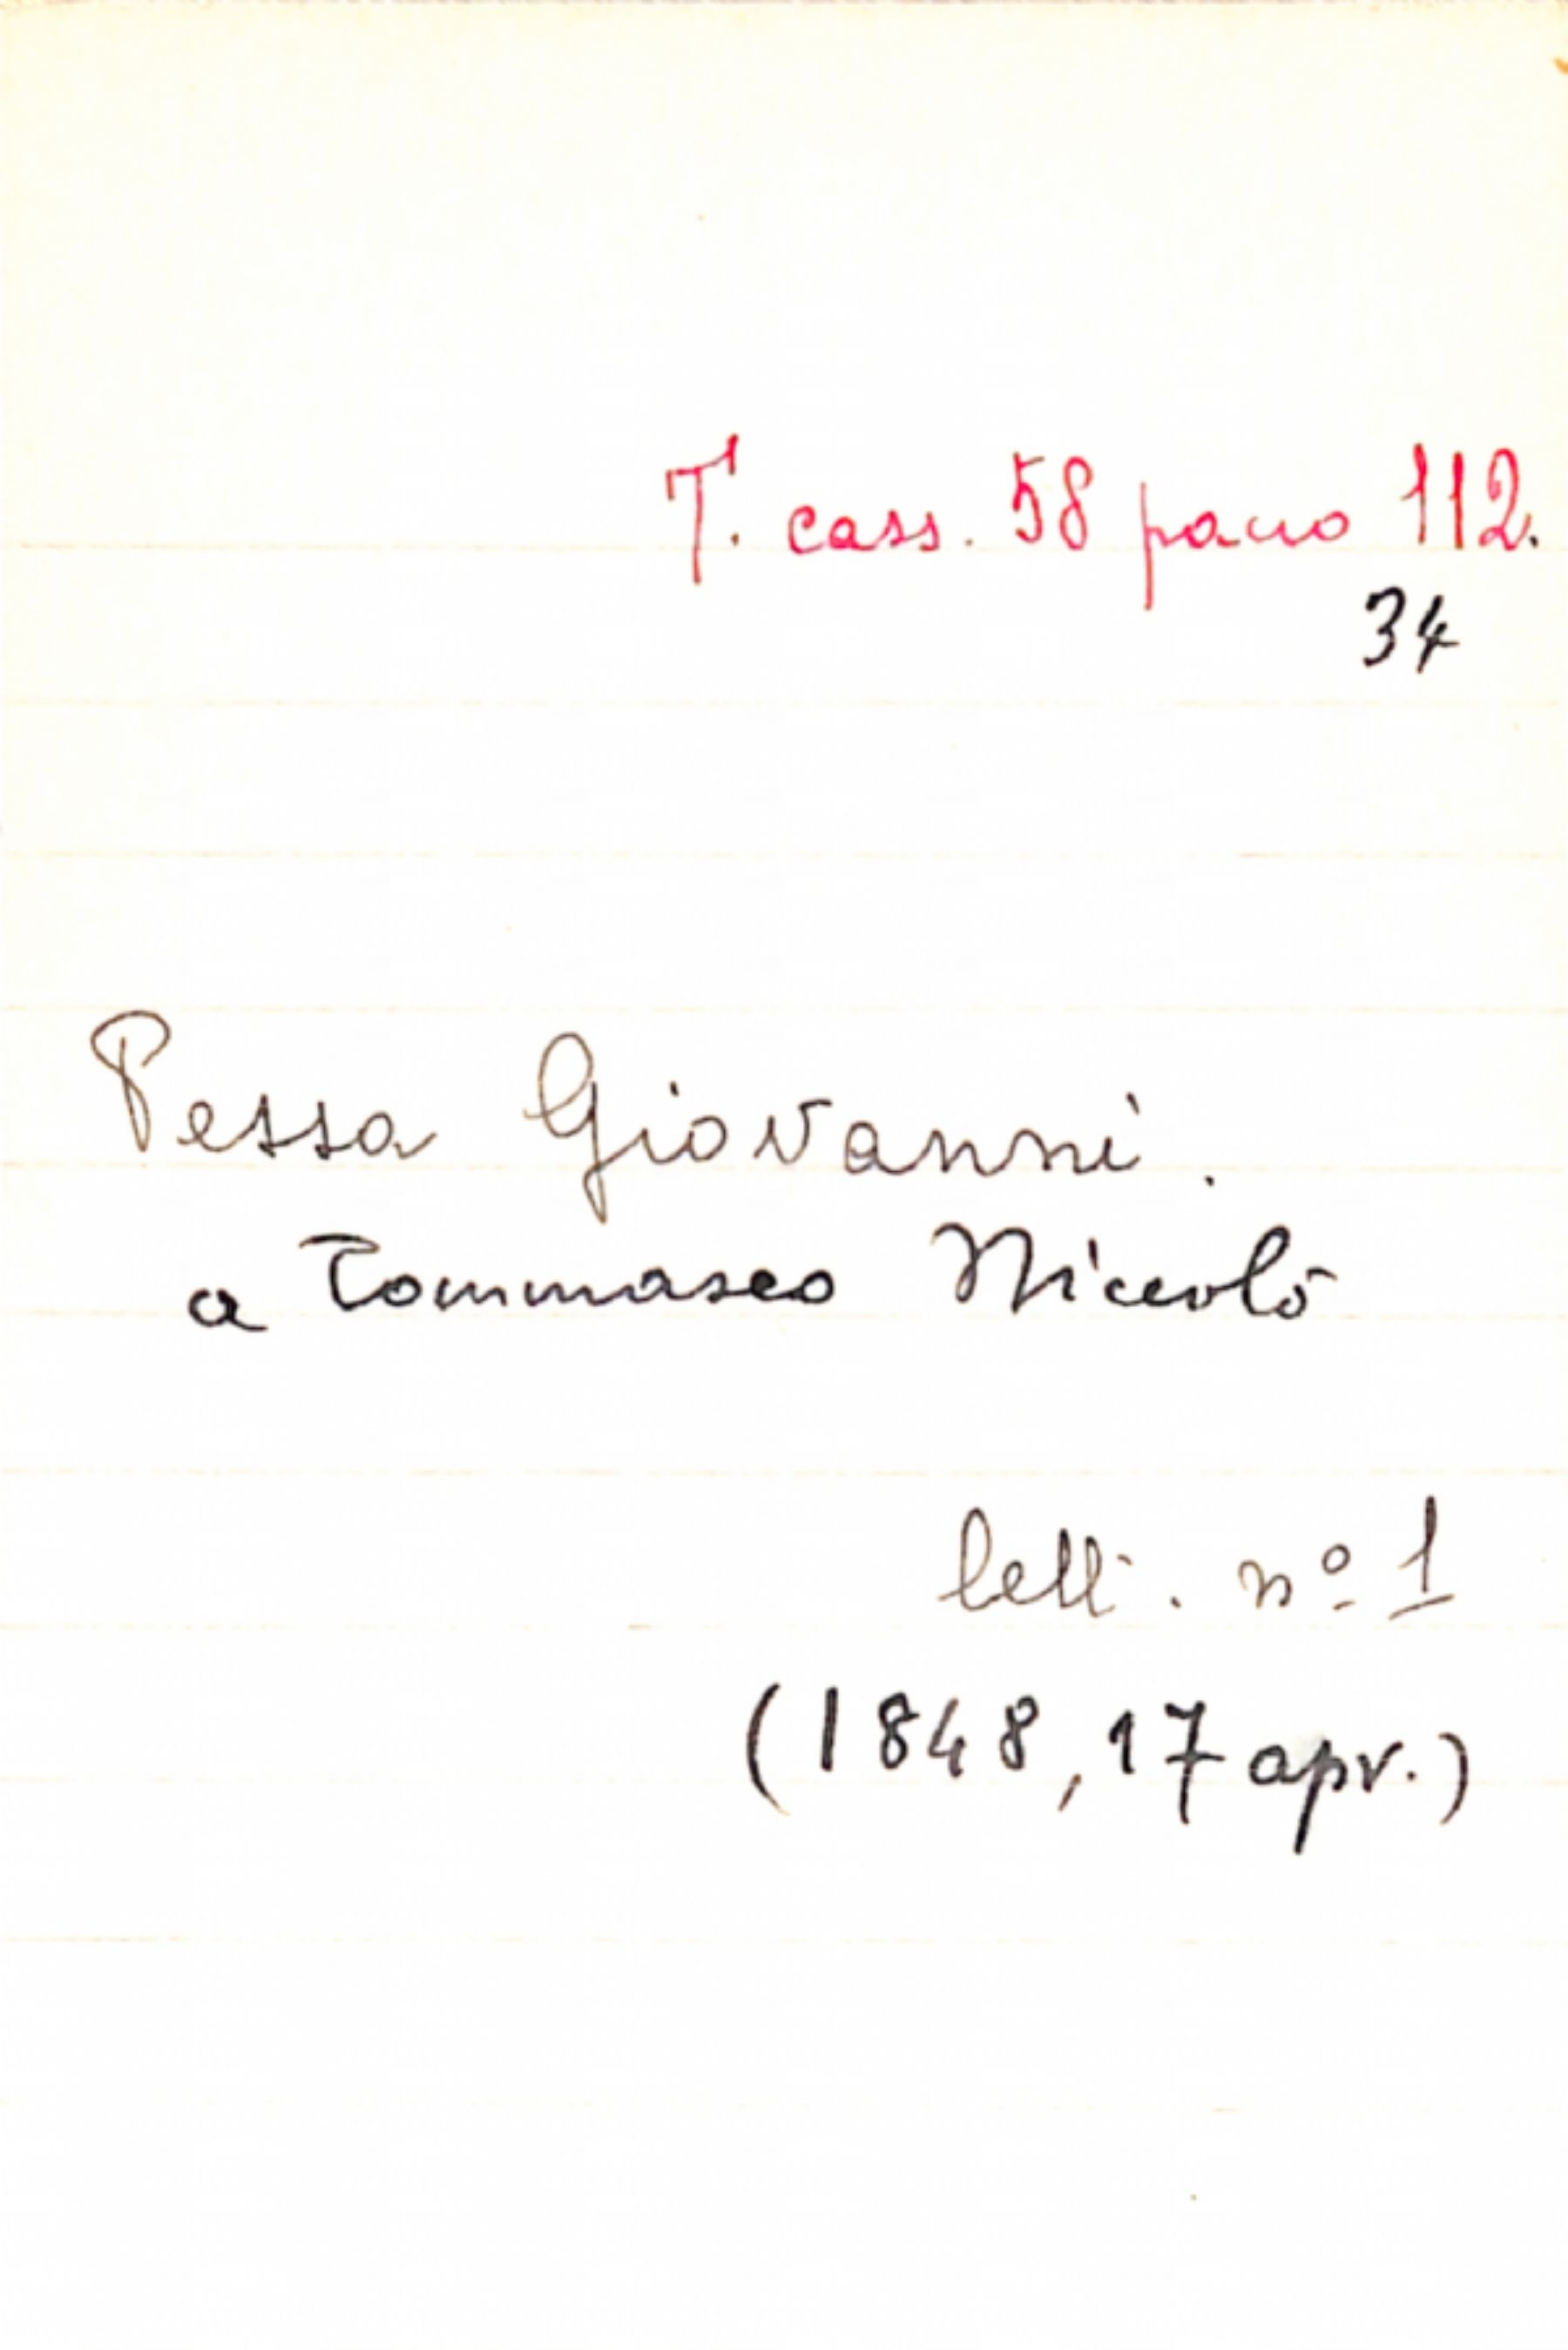 T. cass. 58 pacco 112.
34
Pessa Giovanni.
a Tommaseo Niccolò
lett. nº 1
(1848, 17 apr.)